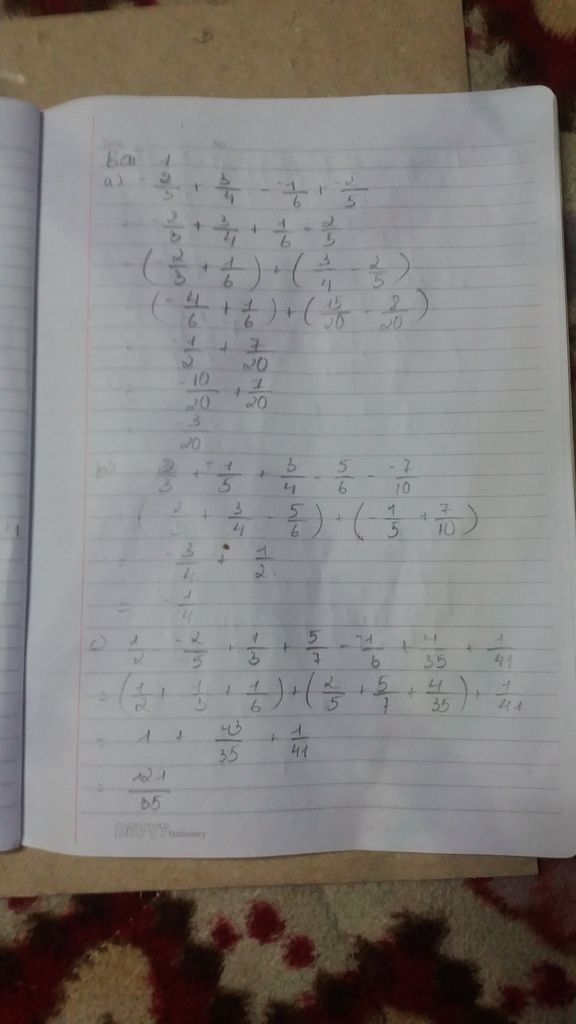 Bài 1
a) -2/3 + 3/4 - -1/6 + -2/5
= -2/3 + 3/4 + 1/6 - 2/5
= (-2/3 + 1/6) + (3/4 - 2/5)
= (-4/6 + 1/6) + (15/20 - 8/20)
= -1/2 + 7/20
= -10/20 + 7/20
= -3/20
b) -2/3 + -1/5 + 3/4 - 5/6 - -7/10
= (-2/3 + 3/4 - 5/6) + (-1/5 + 7/10)
= -3/4 + 1/2
= -1/4
c) 1/2 - -2/5 + 1/3 + 5/7 - -1/6 + 4/35 + 1/41
= (1/2 + 1/3 + 1/6) + (2/5 + 5/7 + 4/35) + 1/41
= 1 + 43/35 + 1/41
= 121/35
DEVYT Stationery